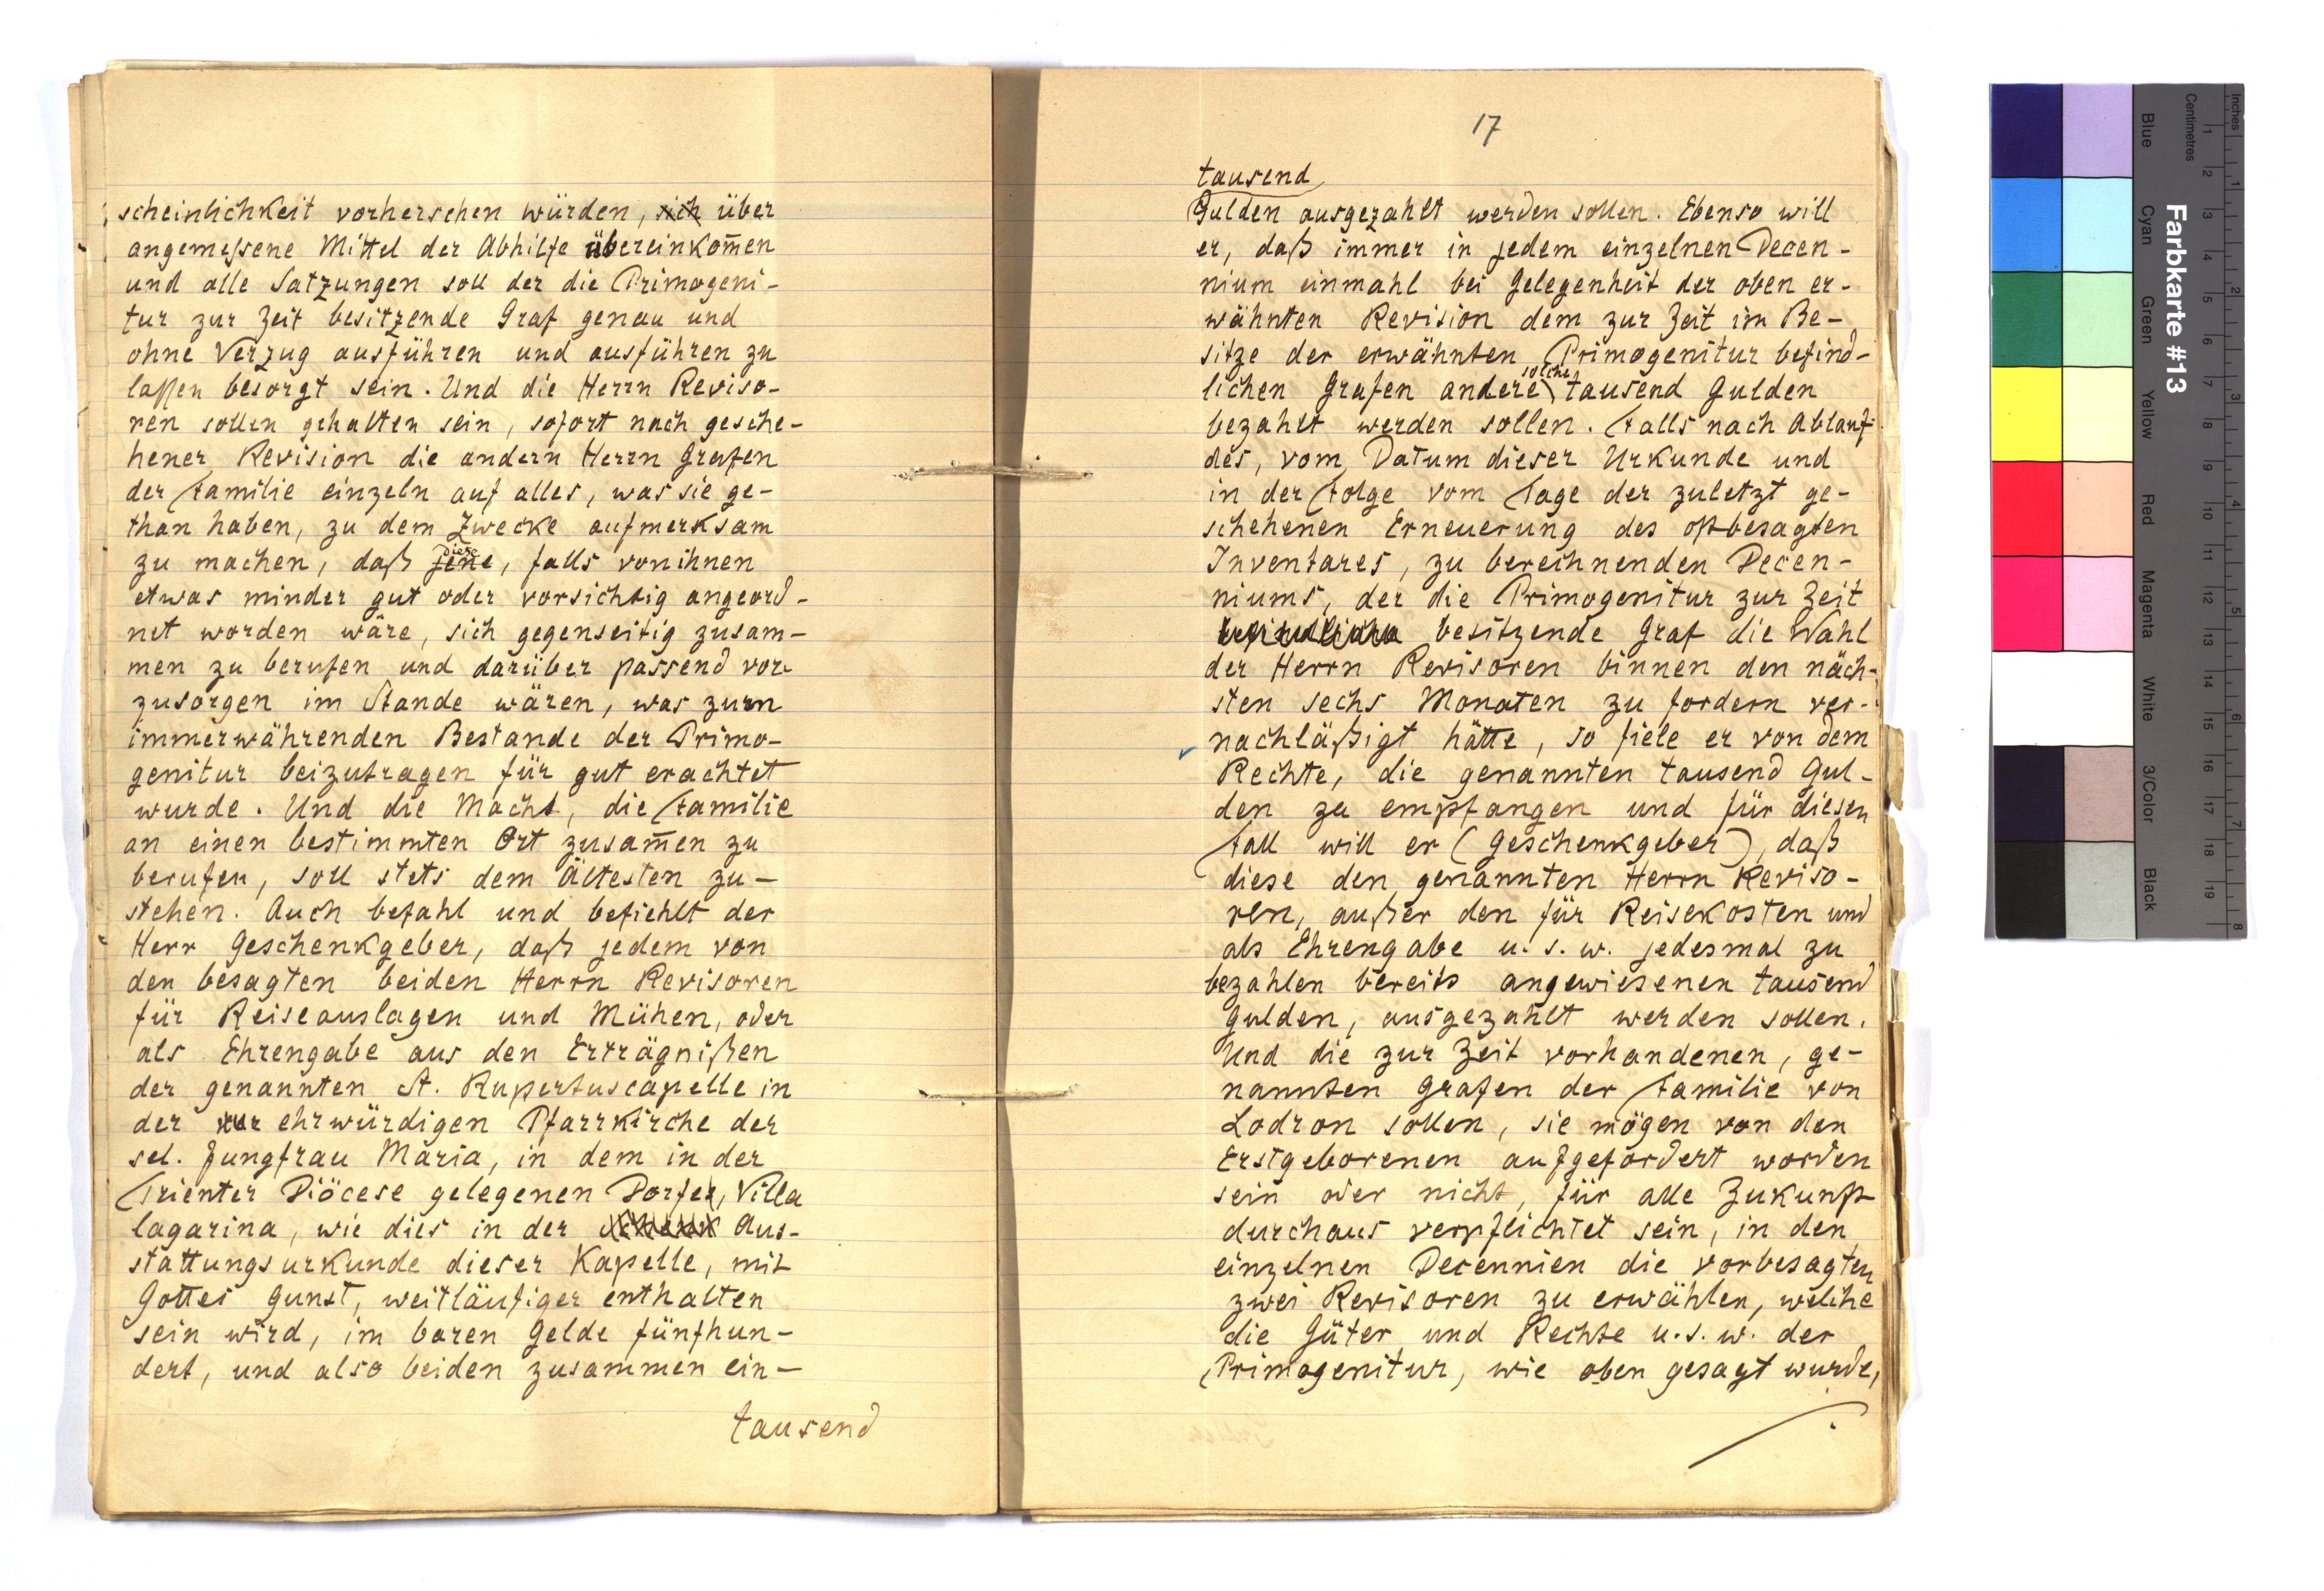 scheinlichkeit vorherschen würden, sich über
angemeßene Mittel der Abhilfe übereinkom̄en
und alle Satzungen soll der die Primogeni-
tur zur Zeit besitzende Graf genau und
ohne Verzug ausführen und ausführen zu
laßen besorgt sein. Und die Herrn Reviso-
ren sollen gehalten sein, sofort nach gesche-
hener Revision die andern Herrn Grafen
der Familie einzeln auf alles, was sie ge-
than haben, zu dem Zwecke aufmerksam
diese
zu machen, daß jene, falls von ihnen
etwas minder gut oder vorsichtig angeord-
net worden wäre, sich gegenseitig zusam-
men zu berufen und darüber passend vor-
zusorgen im Stande wären, was zum
immerwährenden Bestande der Primo-
genitur beizutragen für gut erachtet
wurde. Und die Macht, die Familie
an einen bestimmten Ort zusam̄en zu
berufen, soll stets dem Ältesten zu-
stehen. Auch befahl und befiehlt der
Herr Geschenkgeber, daß jedem von
den besagten beiden Herrn Revisoren
für Reiseauslagen und Mühen, oder
als Ehrengabe aus den Erträgnißen
der genannten St. Rupertuscapelle in
der ehrwürdigen Pfarrkirche der
sel. Jungfrau Maria, in dem in der
Trienter Diöcese gelegenen Dorfe, Villa
lagarina, wie dies in der Aus-
stattungsurkunde dieser Kapelle, mit
Gottes Gunst, weitläufiger enthalten
sein wird, im baren Gelde fünfhun-
dert, und also beiden zusammen ein-
tausend
17
tausend
Gulden ausgezahlt werden sollen. Ebenso will
er, daß immer in jedem einzelnen Decen-
nium einmahl bei Gelegenheit der oben er-
wähnten Revision dem zur Zeit im Be-
sitze der erwähnten Primogenitur befind-
solche
lichen Grafen andere tausend Gulden
bezahlt werden sollen. Falls nach Ablauf
des, vom Datum dieser Urkunde und
in der Folge vom Tage der zuletzt ge-
schehenen Erneuerung des oftbesagten
Inventares, zu berechnenden Decen-
niums, der die Primogenitur zur Zeit
besitzende Graf die Wahl
der Herrn Revisoren binnen den näch-
sten sechs Monaten zu fordern ver-
nachläßigt hätte, so fiele er von dem
Rechte, die genannten tausend Gul-
den zu empfangen und für diesen
Fall will er (Geschenkgeber), daß
diese den genannten Herrn Reviso-
ren, außer den für Reisekosten und
als Ehrengabe u. s. w. jedesmal zu
bezahlen bereits angewiesenen tausend
Gulden, ausgezahlt werden sollen.
Und die zur Zeit vorhandenen, ge-
nannten Grafen der Familie von
Lodron sollen, sie mögen von den
Erstgeborenen aufgefordert worden
sein oder nicht, für alle Zukunft
durchaus verpflichtet sein, in den
einzelnen Decennien die vorbesagten
zwei Revisoren zu erwählen, welche
die Güter und Rechte u. s. w. der
Primogenitur, wie oben gesagt wurde,
Farbkarte #13
Blue
Cyan
Green
Yellow
Red
Magenta
White
3/Color
Black
Centimetres
1 2 3 4 5 6 7 8 9 10 11 12 13 14 15 16 17 18 19
Inches
1 2 3 4 5 6 7 8